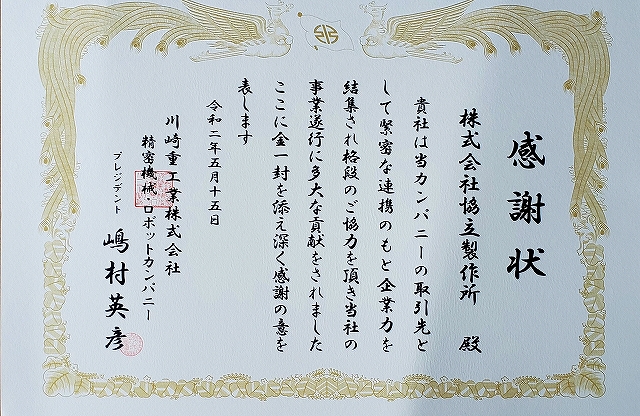 感謝状
株式会社協立製作所 殿
貴社は当カンパニーの取引先と
して緊密な連携のもと企業力を
結集され格段のご協力を頂き当社の
事業遂行に多大な貢献をされました
ここに金一封を添え深く感謝の意を
表します
令和二年五月十五日
川崎重工業株式会社
精密機械・ロボットカンパニー
プレジデント 嶋村英彦